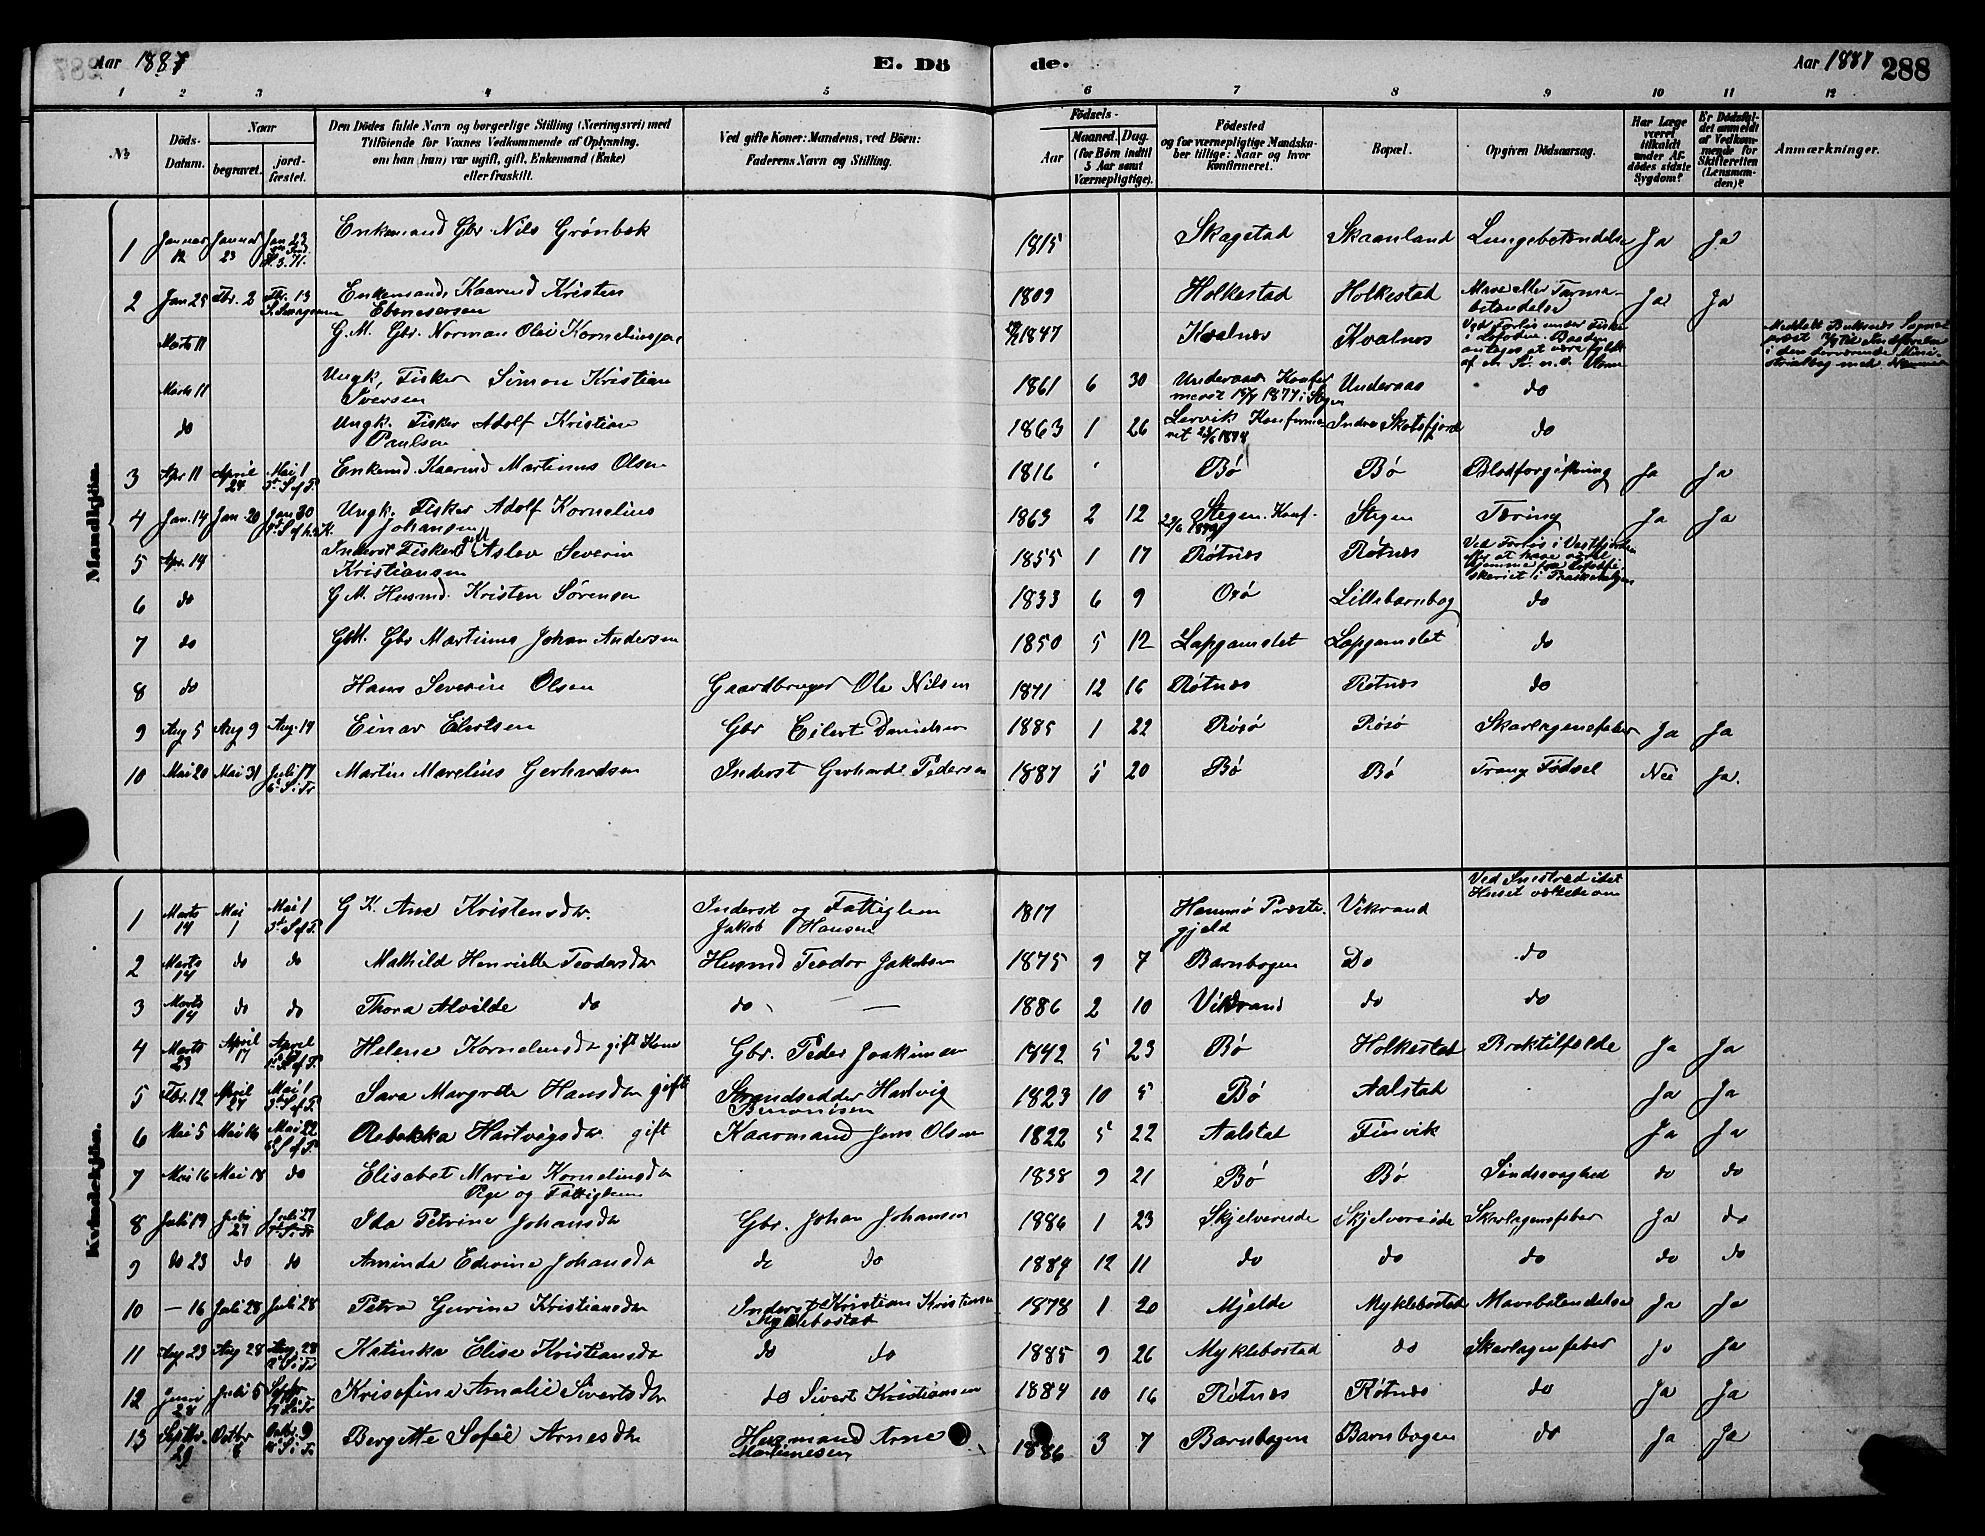 Aar 1887 E. Dö de. Aar 1887 288
1 2 3 4 5 6 7 8 9 10 11 12
No. Döds-Datum. Naar begravet. jord-fæstet. Den Dödes fulde Navn og borgerlige Stilling (Næringsvei) med Tilföiende for Voxnes Vedkommende af Oplysning, om han (hun) var ugift, gift, Enkemand (Enke) eller fraskilt. Ved gifte Koner: Mandens, ved Börn: Faderens Navn og Stilling. Födsels- Aar Maaned. Dag. (for Börn indtil 5 Aar samt Værnepligtige). Födested og for værnepligtige Mandskaber tillige: Naar og hvor konfirmeret. Bopæl. Opgiven Dödsaarsag. Har Læge været tilkaldt under Afdödes sidste Sygdom? Er Dödsfaldet anmeldt af Vedkommende for Skifteretten (Lensmanden)? Anmærkninger.
Mandkjön.
1 Januar 12 Januar 23 Jan 23 Enkemand Gbr. Nils Grønbek 1815 Skagstad Skaanland Lungebetendelse Ja Ja
2 Jan 25 Fbr. 2 Fbr. 13 Enkemand Kaarmd Kristen Ebenesersen 1809 Holkestad Holkestad Mave eller Tarmbetendelse Ja Ja
Marts 11 G. M. Gbr. Norman Olai Korneliussen 1847 Kvalnes Kvalnes Ved Forlis under Fiske i Lofoten. Baaden antages at være fyldt af en Sø
Marts 11 Ungk. Fisker Simon Kristian Iversen 1861 6 30 Undersaas Konfirmeret 1877 i Stegen Undersaas do
do Ungk. Fisker Adolf Kristian Paulsen 1863 1 26 Lervik Konfirmeret Indre Skotsfjord do
3 Apr 11 April 24 Mai 1 3die S. ef P. Enkemd Kaarmd Martinus Olsen 1816 Bø Bø Blodforgiftning Ja Ja
4 Jan. 14 Jan 20 Jan 30 Ungk. Fisker Adolf Kornelius Johansen 1863 2 12 Stegen. Konf. Stegen Tæring Ja Ja
5 Apr. 14 Inderst Fisker gift Aslev Severin Kristiansen 1855 1 17 Røtnes Røtnes Ved Forlis i Vestfjorden
6 do G. M. Husmd. Kristen Sørensen 1833 6 9 Osø Lillebarnbog do
7 do GM. Gbr Martinus Johan Andersen 1850 5 12 Lapgamslet Lapgamslet do
8 do Hans Severin Olsen Gaardbruger Ole Nilsen 1871 12 16 Røtnes Røtnes do
9 Aug 5 Aug 9 Aug. 14 Einar Eilertsen Gbr Eilert Danielsen 1885 1 22 Røsø Røsø Skarlagensfeber Ja Ja
10 Mai 20 Mai 31 Juli 17 6te S. e. Tr Martin Marelius Gerhardsen Inderst Gerhard Pedersen 1887 5 20 Bø Bø Trang Fødsel Nei Ja.
Kvindekjön.
1 Marts 14 Mai 1 Mai 1 3die S. ef P. G K. Ane Kristensdtr. Inderst og Fattiglem Jakob Hansen 1817 Hammerø Præstegjeld Vikrand Ved Sneskred idet Huset væltede om
2 Marts 14 do do Mathild Henriette Teodorsdtr Husmd Teodor Jakobsen 1875 9 7 Barnbogen Do do
3 Marts 14 do do Thora Alvilde do do — — 1886 2 10 Vikrand do do
4 Marts 23 April 17 April 17 Helene Korneliusdtr gift Kone Gbr. Peder Joakimsen 1842 5 23 Bø Holkestad Broktilfelde Ja Ja
5 Fbr. 12 April 24 Mai 1 3die S. ef P. Sara Margrete Hansdtr gift Strandsidder Hartvig Benonisen 1823 10 5 Bø Aalstad Ja Ja
6 Mai 5 Mai 16 Mai 22 Rebekka Hartvigsdtr. gift Kaarmand Jens Olsen 1822 5 22 Aalstad Finvik Ja Ja
7 Mai 16 Mai 18 do Elisabet Maria Korneliusdtr Pige og Fattiglem 1838 9 21 Bø Bø Sindssvaghed do do
8 Juli 19 Juli 27 Juli 27 Ida Petrine Johansdtr Gbr. Johan Johansen 1886 1 23 Skjelvereide Skjelvereide Skarlagensfeber Ja do
9 do 23 do do Aminda Edvine Johansdtr do do 1884 12 11 do do do do do
10 — 16 Juli 28 Juli 28 Petra Gurine Kristiansdtr Inderst Kristian Kristensen Myklebostad 1878 1 20 Mjelde Myklebostad Mavebetendelse Ja Ja
11 Aug 23 Aug 28 Aug. 28 Katinka Elise Kristiansdtr do do 1885 9 26 Myklebostad do Skarlagensfeber Ja Ja
12 Juni 28 Juli 5 Krisofine Amalie Sivertsdtr do Sivert Kristiansen 1884 10 16 Røtnes Røtnes do Ja Ja
13 Septbr. 29 Octbr 8 Octbr. 9 Bergitte Sofie Arnesdtr Husmand Arne Martinesen 1886 3 7 Barnbogen Barnbogen do Ja Ja